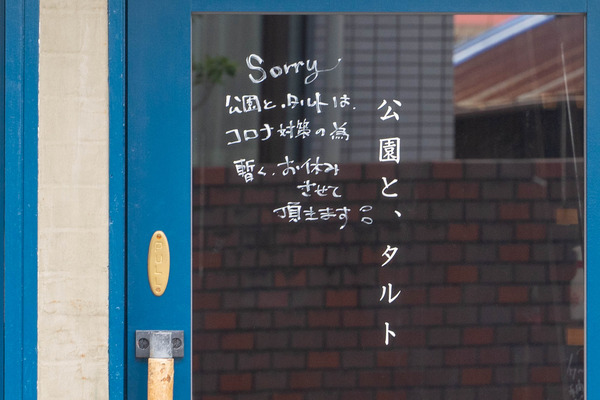 Sorry
公園と、タルトは、
コロナ対策の為
暫く、お休み
させて
頂きます
公園と、タルト
PULL